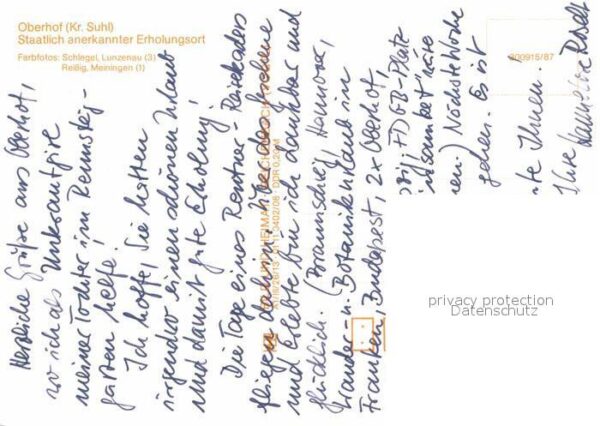 Oberhof (Kr. Suhl)
Staatlich anerkannter Erholungsort
Farbfotos: Schlegel, Lunzenau (3)
Reißig, Meiningen (1)
300915/87
Herzliche Grüße aus Oberhof,
wo ich als Unkrautfree
meiner Tochter im Rennsteig-
garten helfe!
Ich hoffe, Sie hatten
irgendwo einen schönen Urlaub
und damit gute Erholung!
Die Tage eines Rentner-Reisekaders
fliegen dahin! Über das Gesehene
und Erlebte bin ich dankbar und
glücklich. (Braunschweig, Hannover,
Wander- u. Botanikurlaub in
Franken, Budapest, 2x Oberhof,
FDGB-Platz
Nächste Woche
gehen. Es ist
Ihnen.
Ihre
privacy protection
Datenschutz